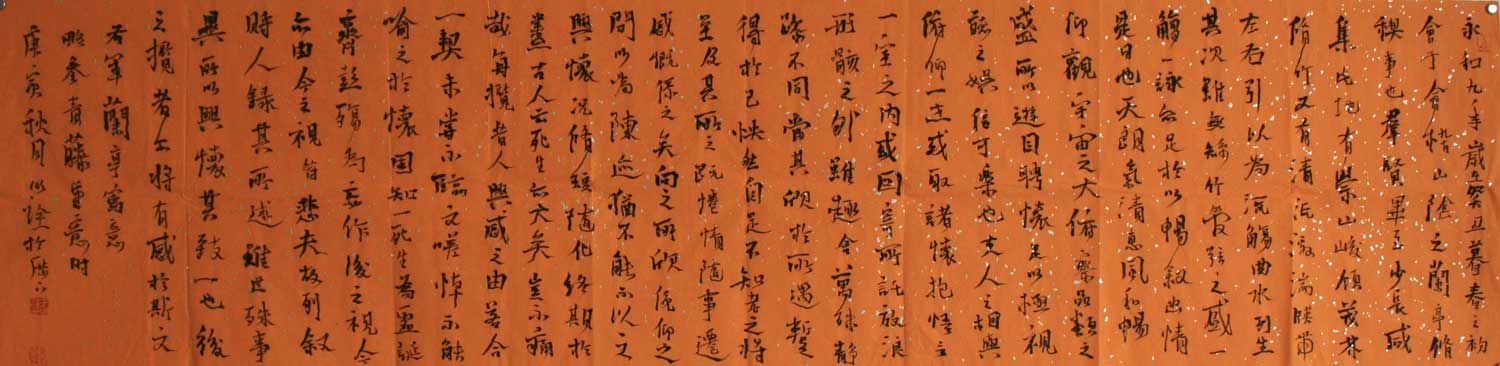 永和九年歲在癸丑暮春之初
會于會稽山陰之蘭亭脩
禊事也群賢畢至少長咸
集此地有崇山峻領茂林
脩竹又有清流激湍映帶
左右引以為流觴曲水列坐
其次雖無絲竹管弦之盛一
觴一詠亦足以暢敘幽情
是日也天朗氣清惠風和暢
仰觀宇宙之大俯察品類之
盛所以遊目騁懷足以極視
聽之娛信可樂也夫人之相與
俯仰一世或取諸懷抱悟言
一室之內或因寄所託放浪
形骸之外雖趣舍萬殊靜
躁不同當其欣於所遇蹔
得於己怏然自足不知老之將
至及其所之既惓情隨事遷
感慨係之矣向之所欣俛仰之
間以為陳迹猶不能不以之
興懷況脩短隨化終期於
盡古人云死生亦大矣豈不痛
哉每攬昔人興感之由若合
一契未嘗不臨文嗟悼不能
喻之於懷固知一死生為虛誕
齊彭殤為妄作後之視今
亦由今之視昔悲夫故列敘
時人錄其所述雖世殊事
異所以興懷其致一也後
之攬者亦將有感於斯文
右軍蘭亭寫意
略參青藤筆意時
庚寅秋月